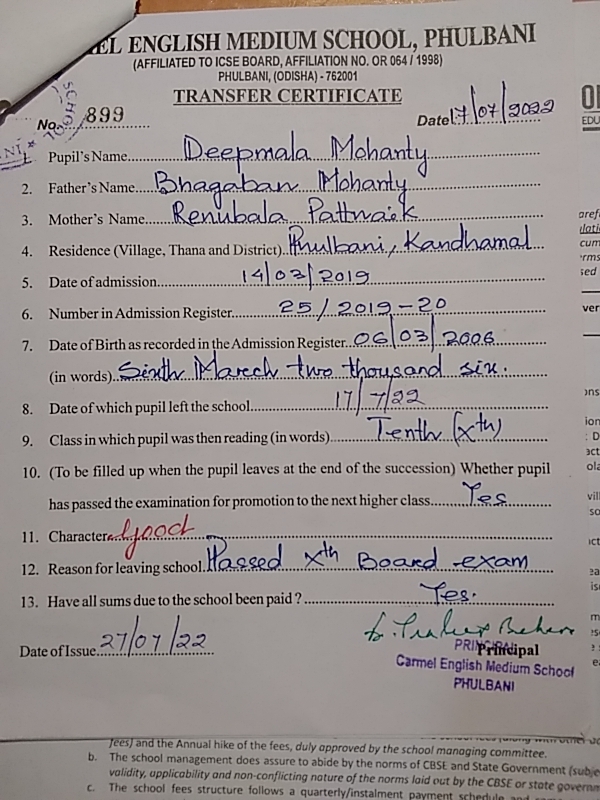 EL ENGLISH MEDIUM SCHOOL, PHULBANI
(AFFILIATED TO ICSE BOARD, AFFILIATION NO. OR 064 / 1998)
PHULBANI, (ODISHA) - 762001
TRANSFER CERTIFICATE
No. 899 Date 17/07/2022
1. Pupil's Name Deepmala Mohanty
2. Father's Name Bhagaban Mohanty
3. Mother's Name Renubala Pattnaik
4. Residence (Village, Thana and District) Phulbani, Kandhamal
5. Date of admission 14/03/2019
6. Number in Admission Register 25/2019-20
7. Date of Birth as recorded in the Admission Register 06/03/2006
(in words) Sixth March two thousand six.
8. Date of which pupil left the school 17/7/22
9. Class in which pupil was then reading (in words) Tenth (xth)
10. (To be filled up when the pupil leaves at the end of the succession) Whether pupil
has passed the examination for promotion to the next higher class Yes
11. Character Good
12. Reason for leaving school Passed xth Board exam
13. Have all sums due to the school been paid ? Yes.
Date of Issue 27/07/22
Principal
PRINCIPAL
Carmel English Medium School
PHULBANI
fees) and the Annual hike of the fees, duly approved by the school managing committee.
b. The school management does assure to abide by the norms of CBSE and State Government (subje
validity, applicability and non-conflicting nature of the norms laid out by the CBSE or state governm
c. The school fees structure follows a quarterly/instalment payment schedule and